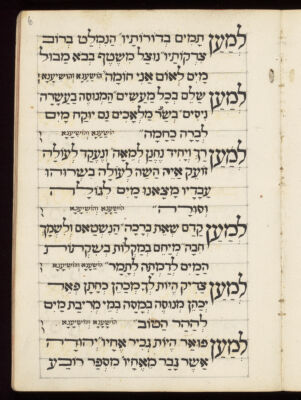 למען תמים בדורותיו הנמלט ברוב
צדקותיו נוצל משטף בבא מבול
מים לאום אני חומה הושיענא והושיענא
למען שלם בכל מעשים המנוסה בעשרה
ניסים כשר מלאכים נם יוקח מים
לברה כחמה הושיענא והושיענא
למען רך ויחיד נחנן למאה ונעקד לעולה
זועק איה השה לעולה בשרוהו
עבדיו מצאנו מים לגולה
וסורה הושיענא והושיענא
למען קדם שאת ברכה הנשטם ולשמך
חכה מיחם במקלות בשקתות
המים לדמתה לתמר הושיענא והושיענא
למען צדיק היות לך מכהן כחתן פאר
יכהן מנוסה במסה במי מריבת מים
לההר הטוב הושיענא והושיענא
למען פואר היות גביר אחיו יהודה
אשר גבר מאחיו מספר רובע